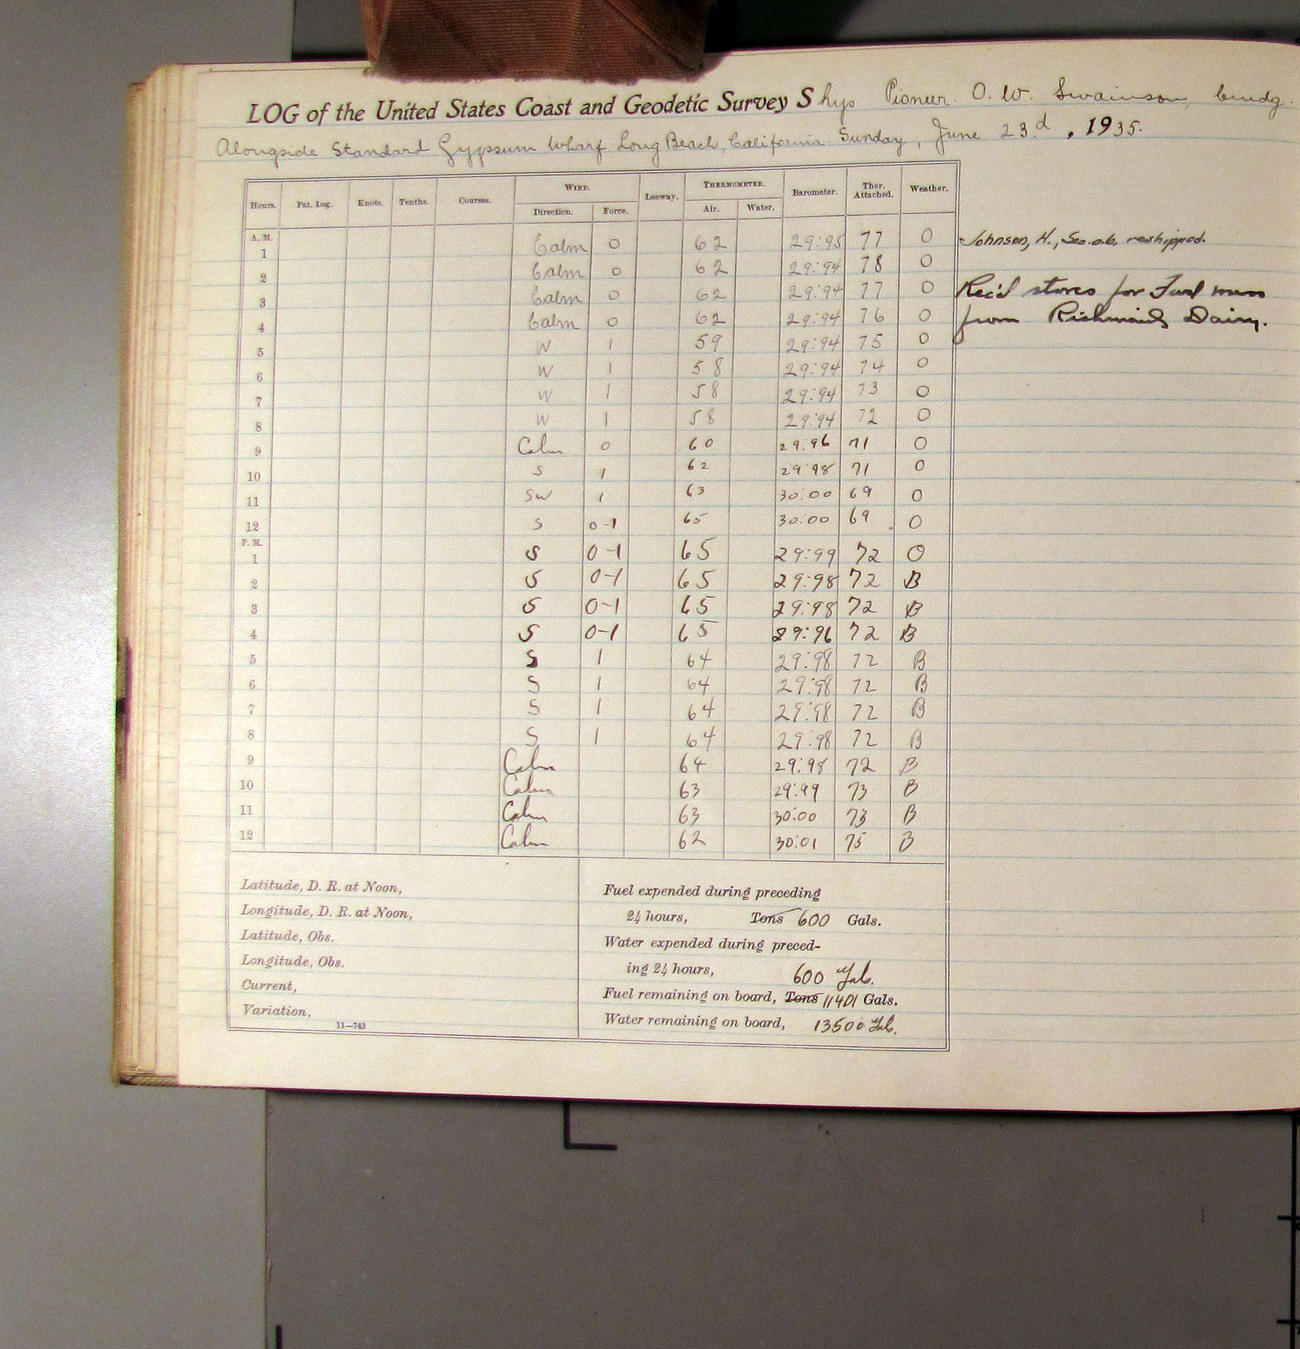 LOG of the United States Coast and Geodetic Survey Ship Pioneer. O. W. Swainson, Cmdg.
Alongside Standard Gyppsum Wharf Long Beach, California. Sunday, June 23d, 1935.
Hours. Pat. Log. Knots. Tenths. Courses. WIND. Direction. Force. Leeway. THERMOMETER. Air. Water. Barometer. Ther. Attached. Weather.
A. M.
1 Calm 0 62 29:95 77 O Johnson, H., Sea. a.b. reshipped.
2 Calm 0 62 29:94 78 O
3 Calm 0 62 29:94 77 O Rec'd stores for Fwd mess
4 Calm 0 62 29:94 76 O from Dairy.
5 W 1 59 29:94 75 O
6 W 1 58 29:94 74 O
7 W 1 58 29:94 73 O
8 W 1 58 29:94 72 O
9 Calm 0 60 29:96 71 O
10 S 1 62 29:98 71 O
11 SW 1 63 30:00 69 O
12 S 0-1 65 30:00 69 O
P. M.
1 S 0-1 65 29:99 72 O
2 S 0-1 65 29:98 72 B
3 S 0-1 65 29:98 72 B
4 S 0-1 65 29:96 72 B
5 S 1 64 29:98 72 B
6 S 1 64 29:98 72 B
7 S 1 64 29:98 72 B
8 S 1 64 29:98 72 B
9 Calm 64 29:98 72 B
10 Calm 63 29:99 73 B
11 Calm 63 30:00 73 B
12 Calm 62 30:01 75 B
Latitude, D. R. at Noon,
Longitude, D. R. at Noon,
Latitude, Obs.
Longitude, Obs.
Current,
Variation,
11—743
Fuel expended during preceding
24 hours, Tons 600 Gals.
Water expended during preced-
ing 24 hours, 600 Gals.
Fuel remaining on board, Tons 11401 Gals.
Water remaining on board, 13500 Gals.